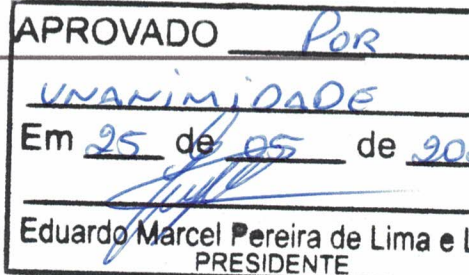 APROVADO POR
UNANIMIDADE
Em 25 de 05 de 20
Eduardo Marcel Pereira de Lima e L
PRESIDENTE